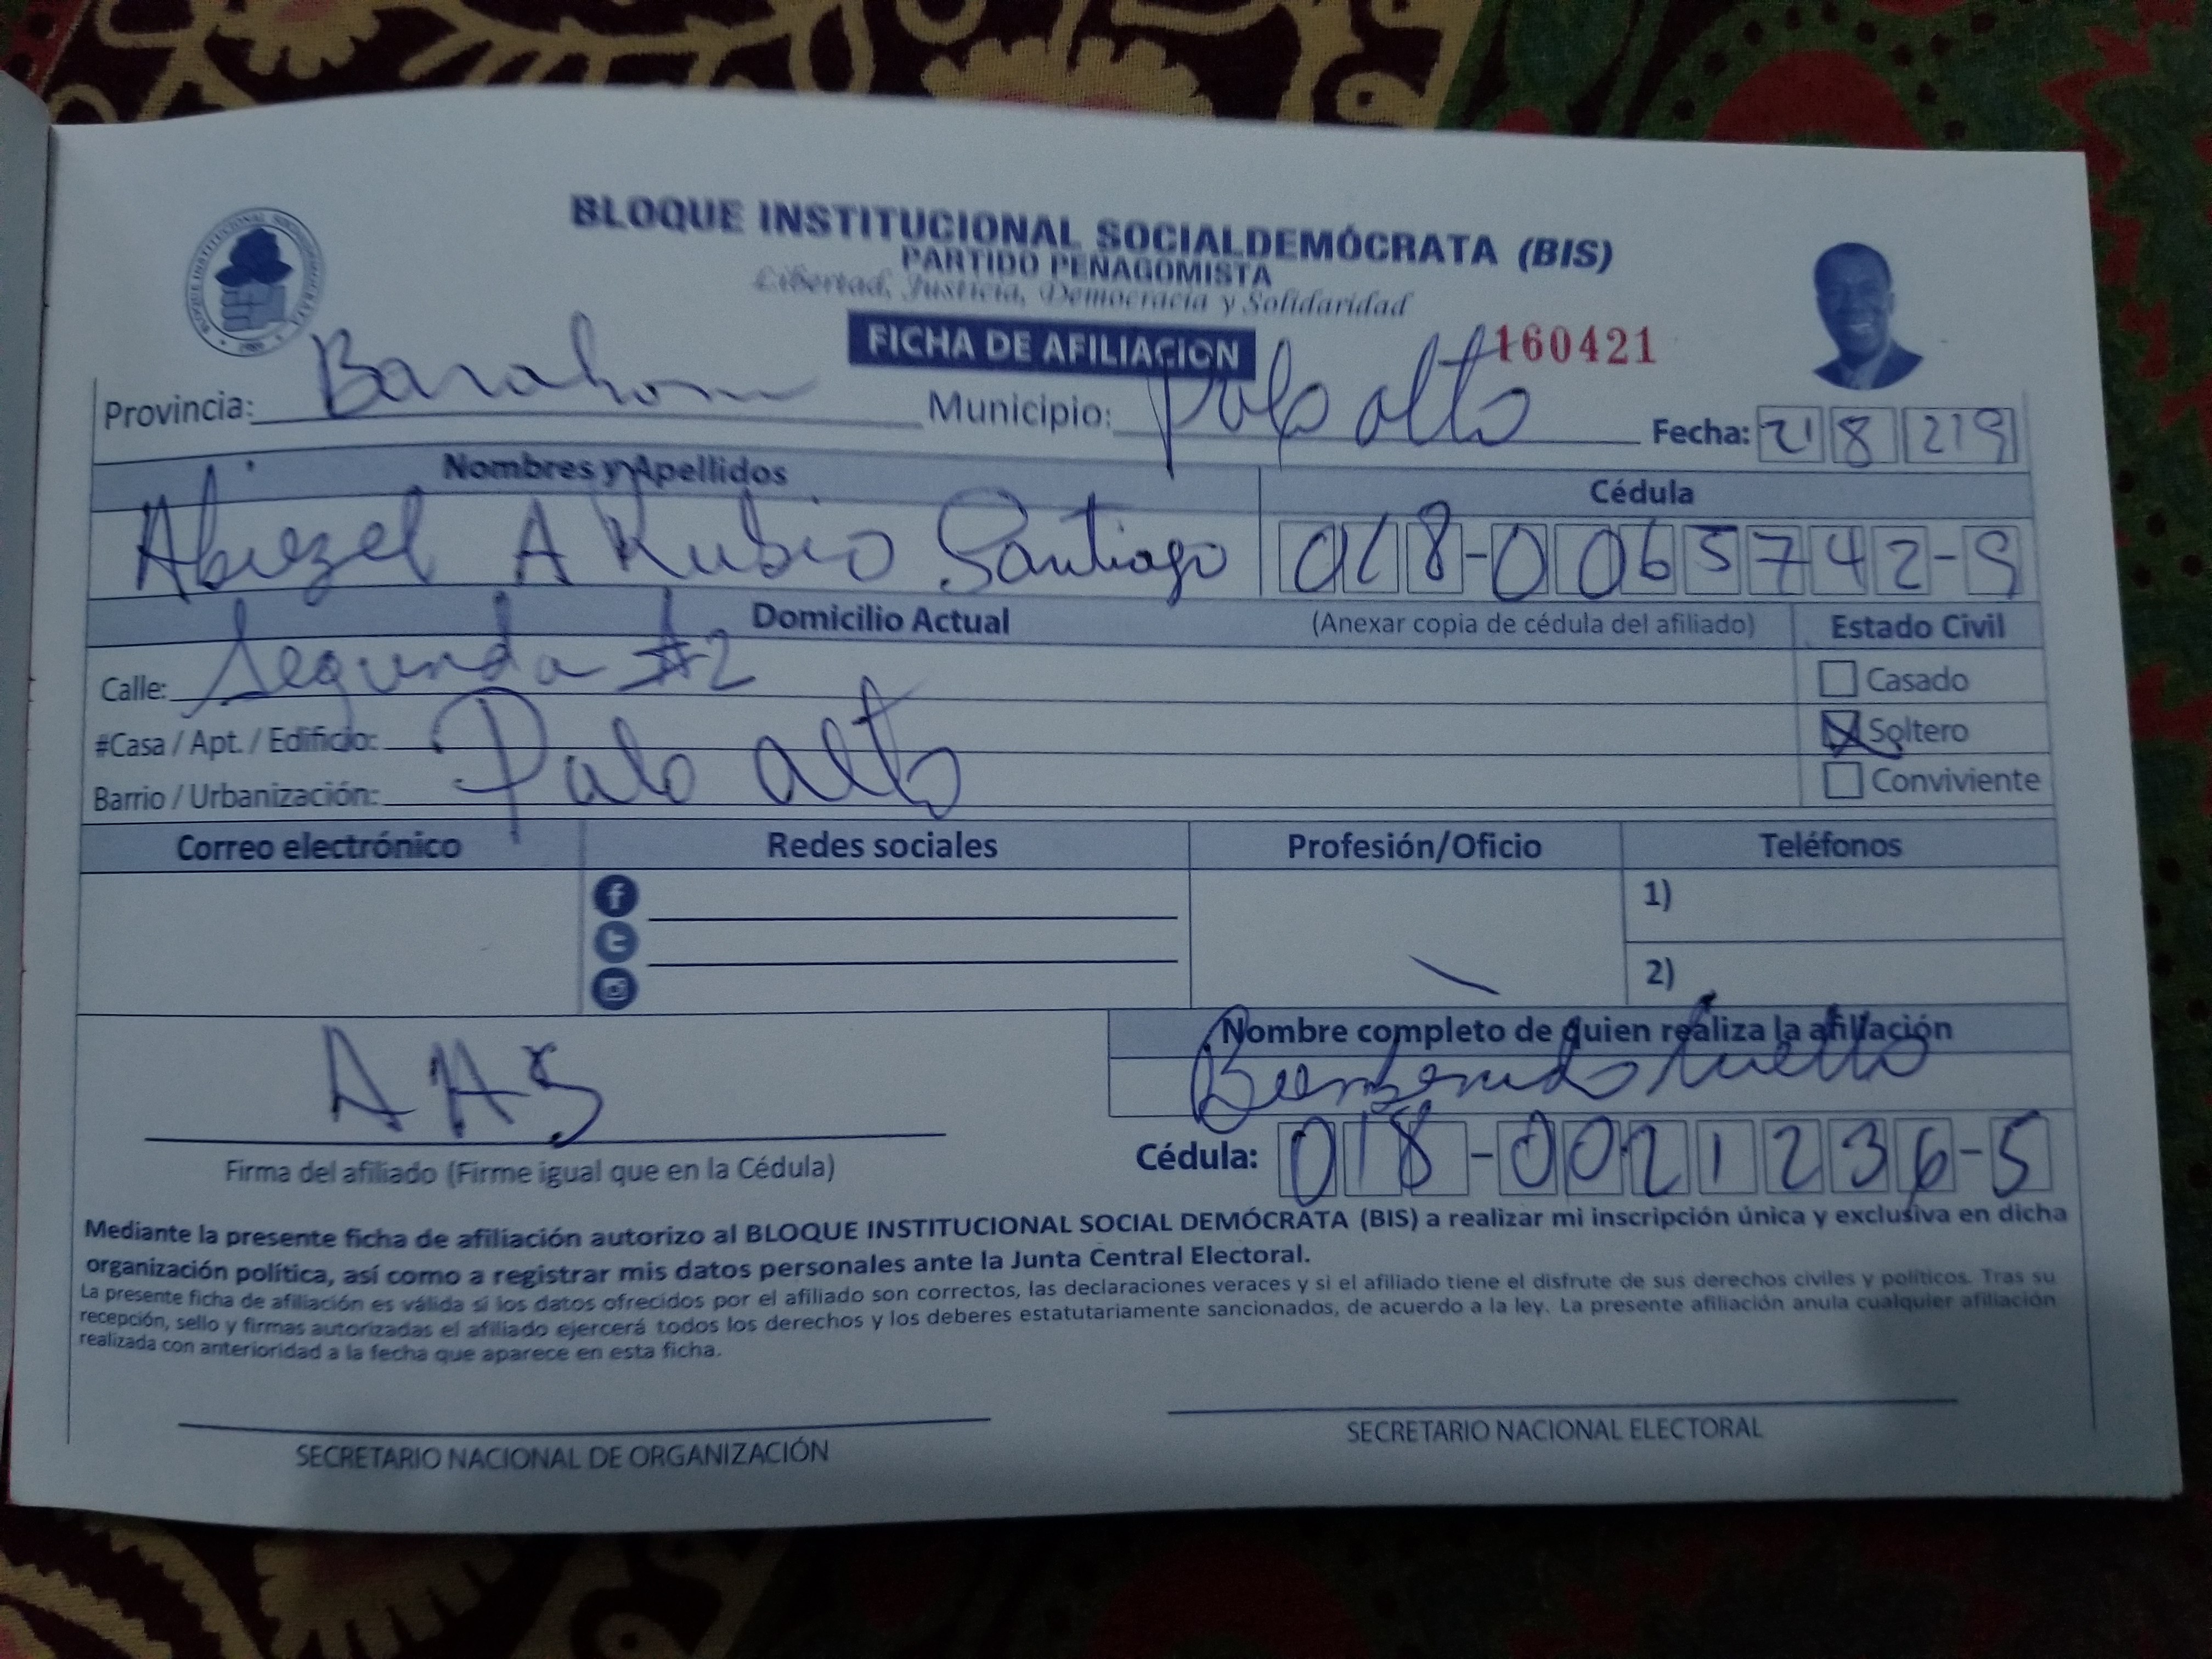 BLOQUE INSTITUCIONAL SOCIALDEMÓCRATA (BIS)
PARTIDO PEÑAGOMISTA
Libertad, Justicia, Democracia y Solidaridad
FICHA DE AFILIACION 160421
Provincia: Barahona Municipio: Palo alto Fecha: 21 8 219
Nombres y Apellidos Cédula
Abiezel A Rubio Santiago 018-0065742-9
Domicilio Actual (Anexar copia de cédula del afiliado) Estado Civil
Calle: Segunda #2 Casado
#Casa / Apt. / Edificio: Soltero
Barrio / Urbanización: Palo alto Conviviente
Correo electrónico Redes sociales Profesión/Oficio Teléfonos
1)
2)
Nombre completo de quien realiza la afiliación
Bienbenido Cuello
Cédula: 018-0021236-5
Firma del afiliado (Firme igual que en la Cédula)
Mediante la presente ficha de afiliación autorizo al BLOQUE INSTITUCIONAL SOCIAL DEMÓCRATA (BIS) a realizar mi inscripción única y exclusiva en dicha
organización política, así como a registrar mis datos personales ante la Junta Central Electoral.
La presente ficha de afiliación es válida si los datos ofrecidos por el afiliado son correctos, las declaraciones veraces y si el afiliado tiene el disfrute de sus derechos civiles y políticos. Tras su
recepción, sello y firmas autorizadas el afiliado ejercerá todos los derechos y los deberes estatutariamente sancionados, de acuerdo a la ley. La presente afiliación anula cualquier afiliación
realizada con anterioridad a la fecha que aparece en esta ficha.
SECRETARIO NACIONAL DE ORGANIZACIÓN SECRETARIO NACIONAL ELECTORAL